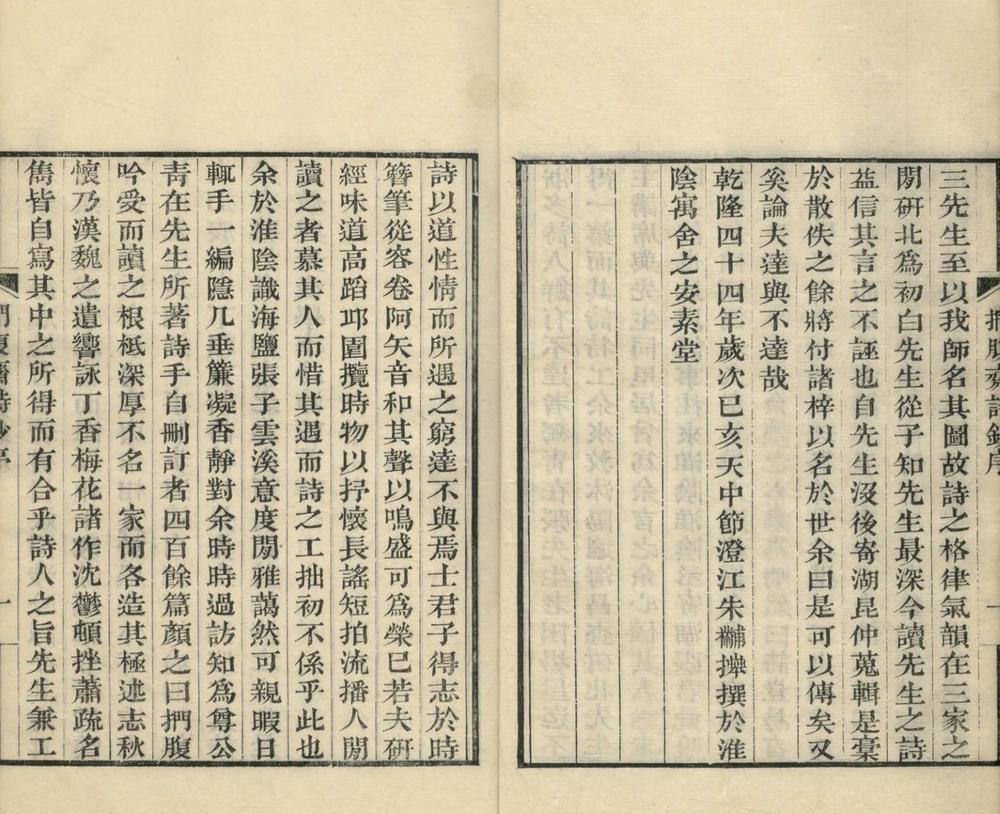 捫腹齋詩鈔序
三先生至以我師名其圖故詩之格律氣韻在三家之
閒研北為初白先生從子知先生最深今讀先生之詩
益信其言之不誣也自先生沒後寄湖昆仲蒐輯是稾
於散佚之餘將付諸梓以名於世余曰是可以傳矣又
奚論夫達與不達哉
乾隆四十四年歲次己亥天中節澄江朱黼撰於淮
陰寓舍之安素堂
詩以道性情而所遇之窮達不與焉士君子得志於時
簪筆從容卷阿矢音和其聲以鳴盛可為榮巳若夫研
經味道高蹈邱園攬時物以抒懷長謠短拍流播人閒
讀之者慕其人而惜其遇而詩之工拙初不係乎此也
余於淮陰識海鹽張子雲溪意度閒雅藹然可親暇日
輒手一編隱几垂簾凝香靜對余時時過訪知為尊公
青在先生所著詩手自刪訂者四百餘篇顏之曰捫腹
吟受而讀之根柢深厚不名一家而各造其極述志秋
懷乃漢魏之遺響詠丁香梅花諸作沈鬱頓挫蕭疏名
雋皆自寫其中之所得而有合乎詩人之旨先生兼工
捫腹齋詩鈔序
一